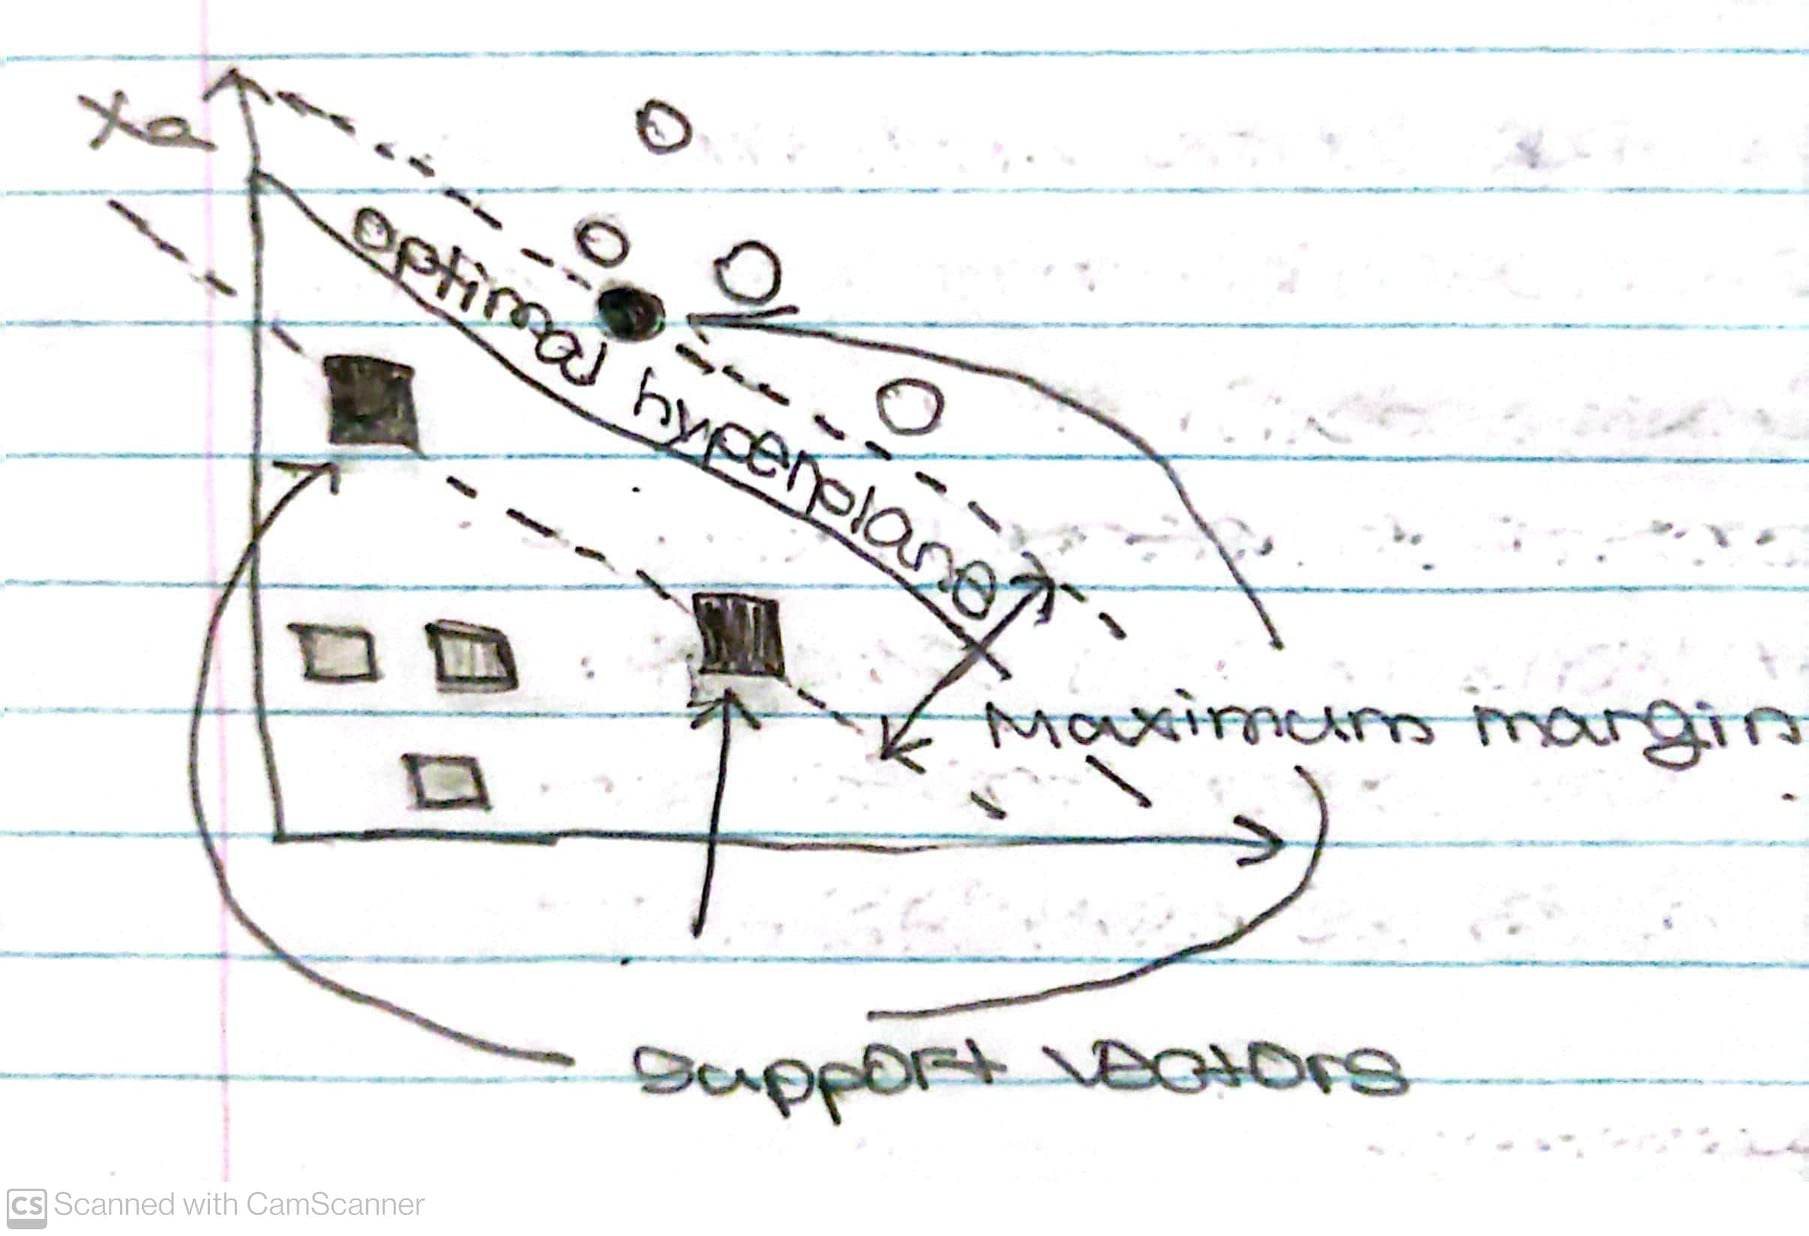 x2
optimal hyperplane
Maximum margin
support vectors
CS Scanned with CamScanner